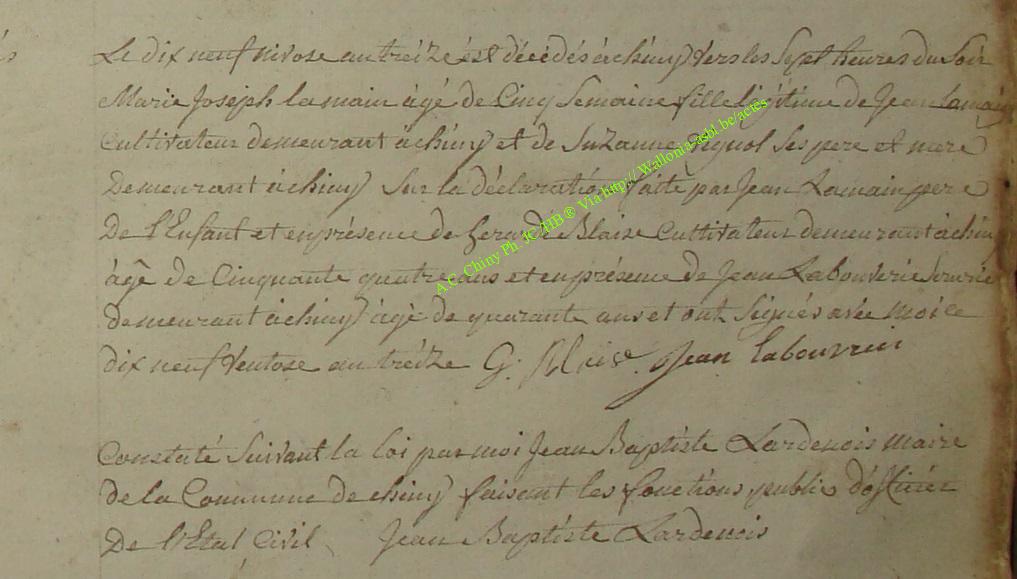 Le dix neuf nivose an treize est décédés à chiny vers les sept heures du Soir
Marie Joseph lamain âgé de Cinq Semaine fille légitime de Jean Lamain
Cultivateur demeurant à chiny et de Suzanne Pignol Ses pere et mere
Demeurant à chiny Sur la déclaration faite par Jean Lamain pere
De l'Enfant et en présence de Gerard Blaise Cultivateur demeurant à chiny
âgé de Cinquante quatre ans et en présence de Jean Labouverie
demeurant à chiny âgé de quarante ans et ont Signés avec moi ce
dix neuf Ventose an treize G. Blaise Jean labouvrié
Constaté Suivant la loi par moi Jean Baptiste Lardenois maire
de la Commune de chiny faisant les fonctions public d'officier
De l'Etat Civil Jean Baptiste Lardenois
A.C. Chiny Ph. JC/HB ® Via http://Wallonia-asbl.be/actes